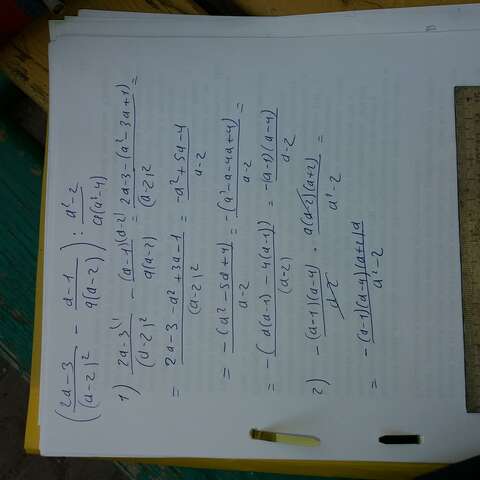 (2a-3/(a-2)² - a-1/a(a-2)) : a²-2/a(a²-4)
1) 2a-3\¹/(a-2)² - (a-1)(a-2)/a(a-2) = 2a-3-(a²-3a+1)/(a-2)² =
= 2a-3-a²+3a-1/(a-2)² = -a²+5a-4/a-2
= -(a²-5a+4)/a-2 = -(a²-a-4a+4)/a-2 =
= -(a(a-1)-4(a-1))/(a-2) = -(a-1)(a-4)/a-2
2) -(a-1)(a-4)/a-2 · a(a-2)(a+2)/a²-2 =
= -(a-1)(a-4)(a+2)a/a²-2